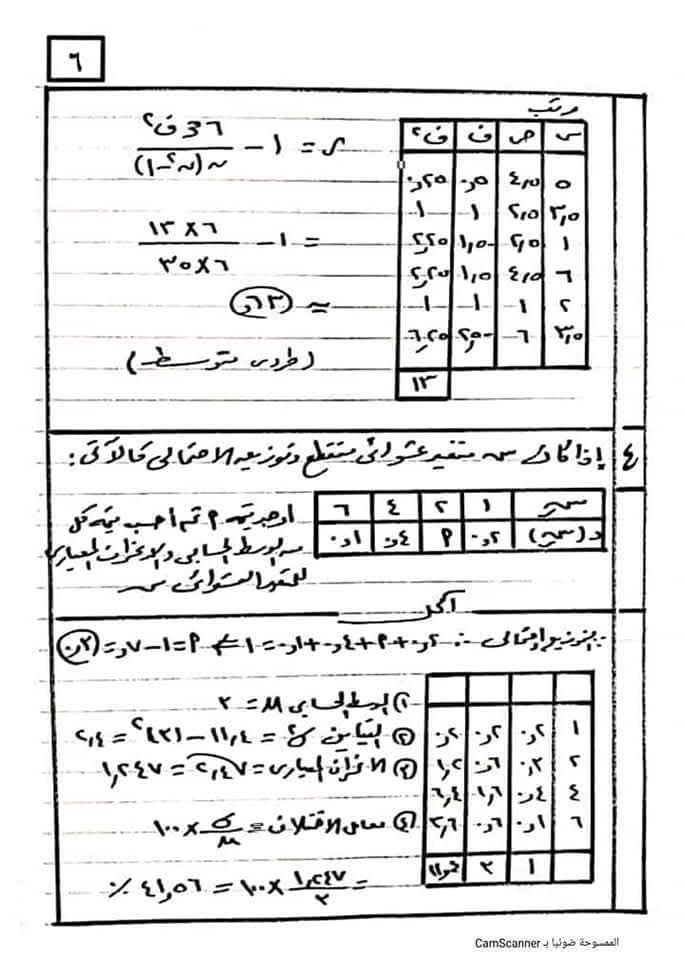 ٦
رتب
س ص ف ف٢
٥ ٤,٥ ٠,٥ ٠,٢٥
٣,٥ ٢,٥ ١ ١
١ ٢,٥ ١,٥- ٢,٢٥
٦ ٤,٥ ١,٥ ٢,٢٥
٢ ١ ١ ١
٣,٥ ٦ ٢,٥- ٦,٢٥
١٣
ر = ١ - ٦ مجـ ف٢ / ن (ن٢ - ١)
= ١ - ٦ × ١٣ / ٦ × ٣٥
≃ ٠,٦٣
(طردى متوسط)
٤ إذا كان س متغير عشوائى متقطع وتوزيعه الاحتمالى كالآتى :
سر ١ ٢ ٤ ٦
د(سر) ٠,٢ م ٠,٤ ٠,١
أوجد قيمة م ثم أحسب قيمة كل
من الوسط الحسابى والانحراف المعيارى
للمتغير العشوائى س
الحل
∵ التوزيع احتمالى ∴ ٠,٢ + م + ٠,٤ + ٠,١ = ١ ⇐ م = ١ - ٠,٧ = ٠,٣
١ ٠,٢ ٠,٢ ٠,٢
٢ ٠,٣ ٠,٦ ١,٢
٤ ٠,٤ ١,٦ ٦,٤
٦ ٠,١ ٠,٦ ٣,٦
١ ٣ ١١,٤
① الوسط الحسابى μ = ٣
② التباين σ٢ = ١١,٤ - (٣)٢ = ٢,٤
③ الانحراف المعيارى = √٢,٤ = ١,٢٤٧
④ معامل الاختلاف = σ / μ × ١٠٠
= ١,٢٤٧ / ٣ × ١٠٠ = ٤١,٥٦ %
الممسوحة ضوئيا بـ CamScanner